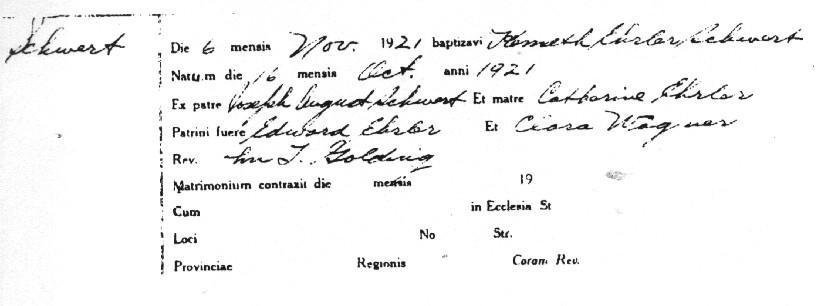 Schwert
Die 6 mensis Nov. 1921 baptizavi Kenneth Ehrler Schwert
Natum die 16 mensis Oct. anni 1921
Ex patre Joseph August Schwert Et matre Catherine Ehrler
Patrini fuere Edward Ehrler Et Clara Wagner
Rev. Jno T. Golding
Matrimonium contraxit die mensis 19
Cum in Ecclesia St
Loci No Str.
Provinciae Regionis Coram Rev.